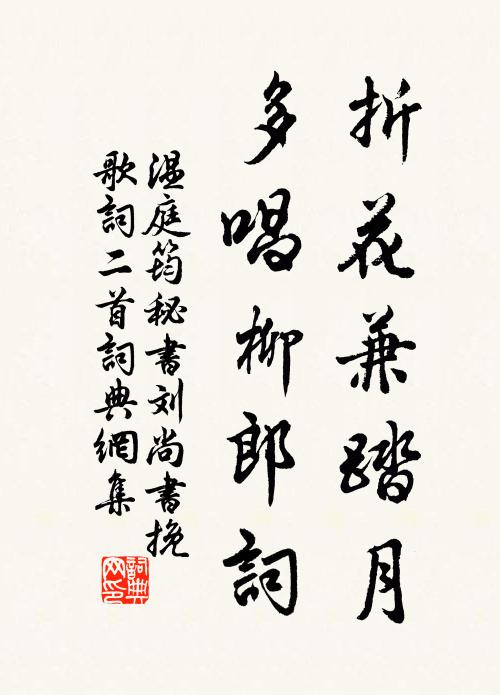 折花兼踏月
多唱柳郎詞
温庭筠秘書刘尚書挽
歌詞二首詞典網集
詞典
网印